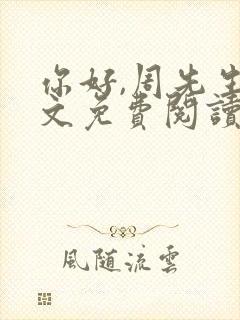 你好,周先生
文免費閱讀
風隨流雲